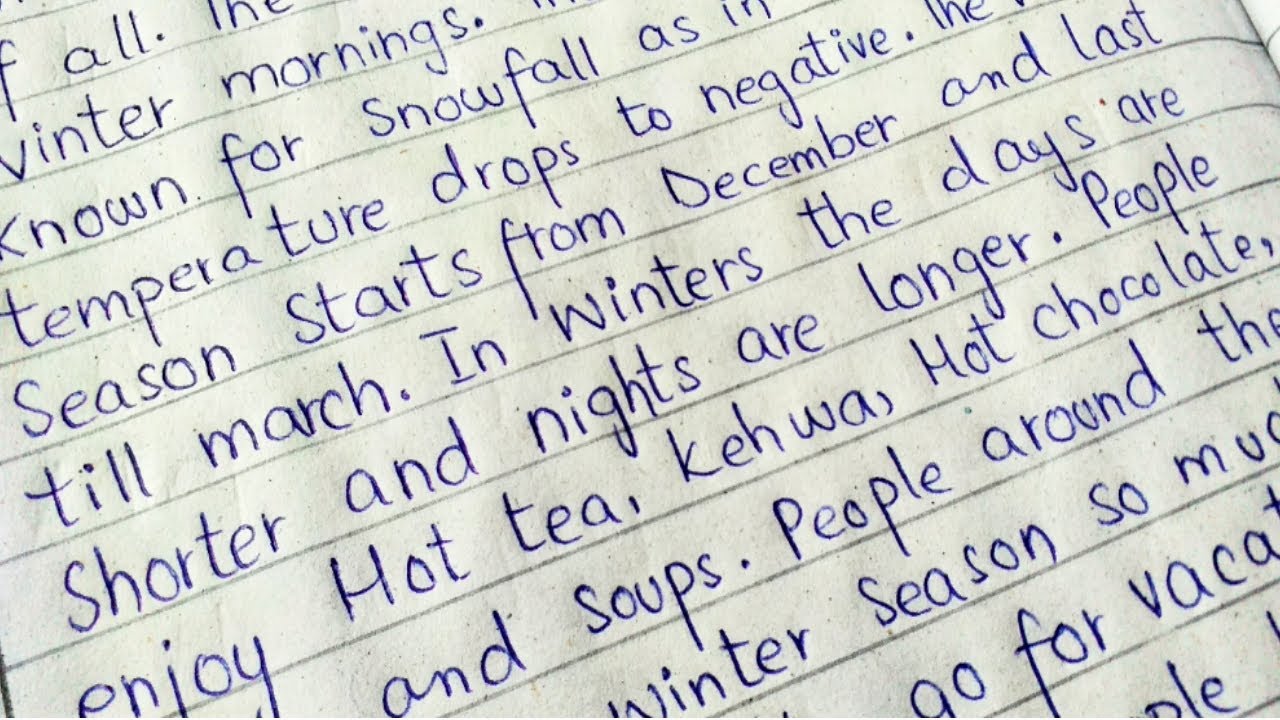 all. The
winter mornings.
Known for Snowfall as in
temperature drops to negative. The
Season Starts from December and last
till march. In winters the days are
Shorter and nights are longer. People
enjoy Hot tea, Kehwa, Hot chocolate,
and soups. People around the
winter Season so muc
go for vacat
ple